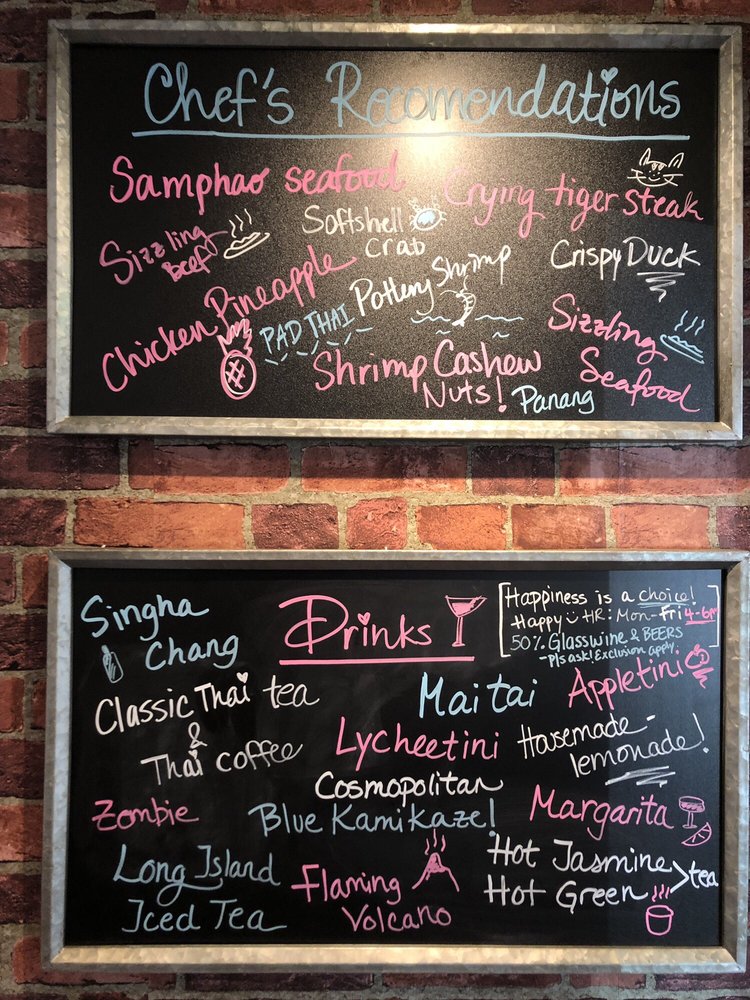 Chef's Recomendations
Samphao seafood
Crying tiger steak
Sizzling
Beef
Softshell
Crab
Crispy Duck
Chicken Pineapple
PAD THAI
Pottery Shrimp
Sizzling
Seafood
Shrimp Cashew
Nuts!
Panang
Singha
Chang
Drinks
Happiness is a choice!
Happy HR: Mon-Fri 4-6pm
50% Glasswine & BEERS
-Pls ask! Exclusion apply.
Classic Thai tea
&
Thai coffee
Mai tai
Appletini
Lycheetini
Housemade-
lemonade!
Cosmopolitan
Zombie
Blue Kamikaze!
Margarita
Long Island
Iced Tea
Flaming
Volcano
Hot Jasmine
Hot Green > tea